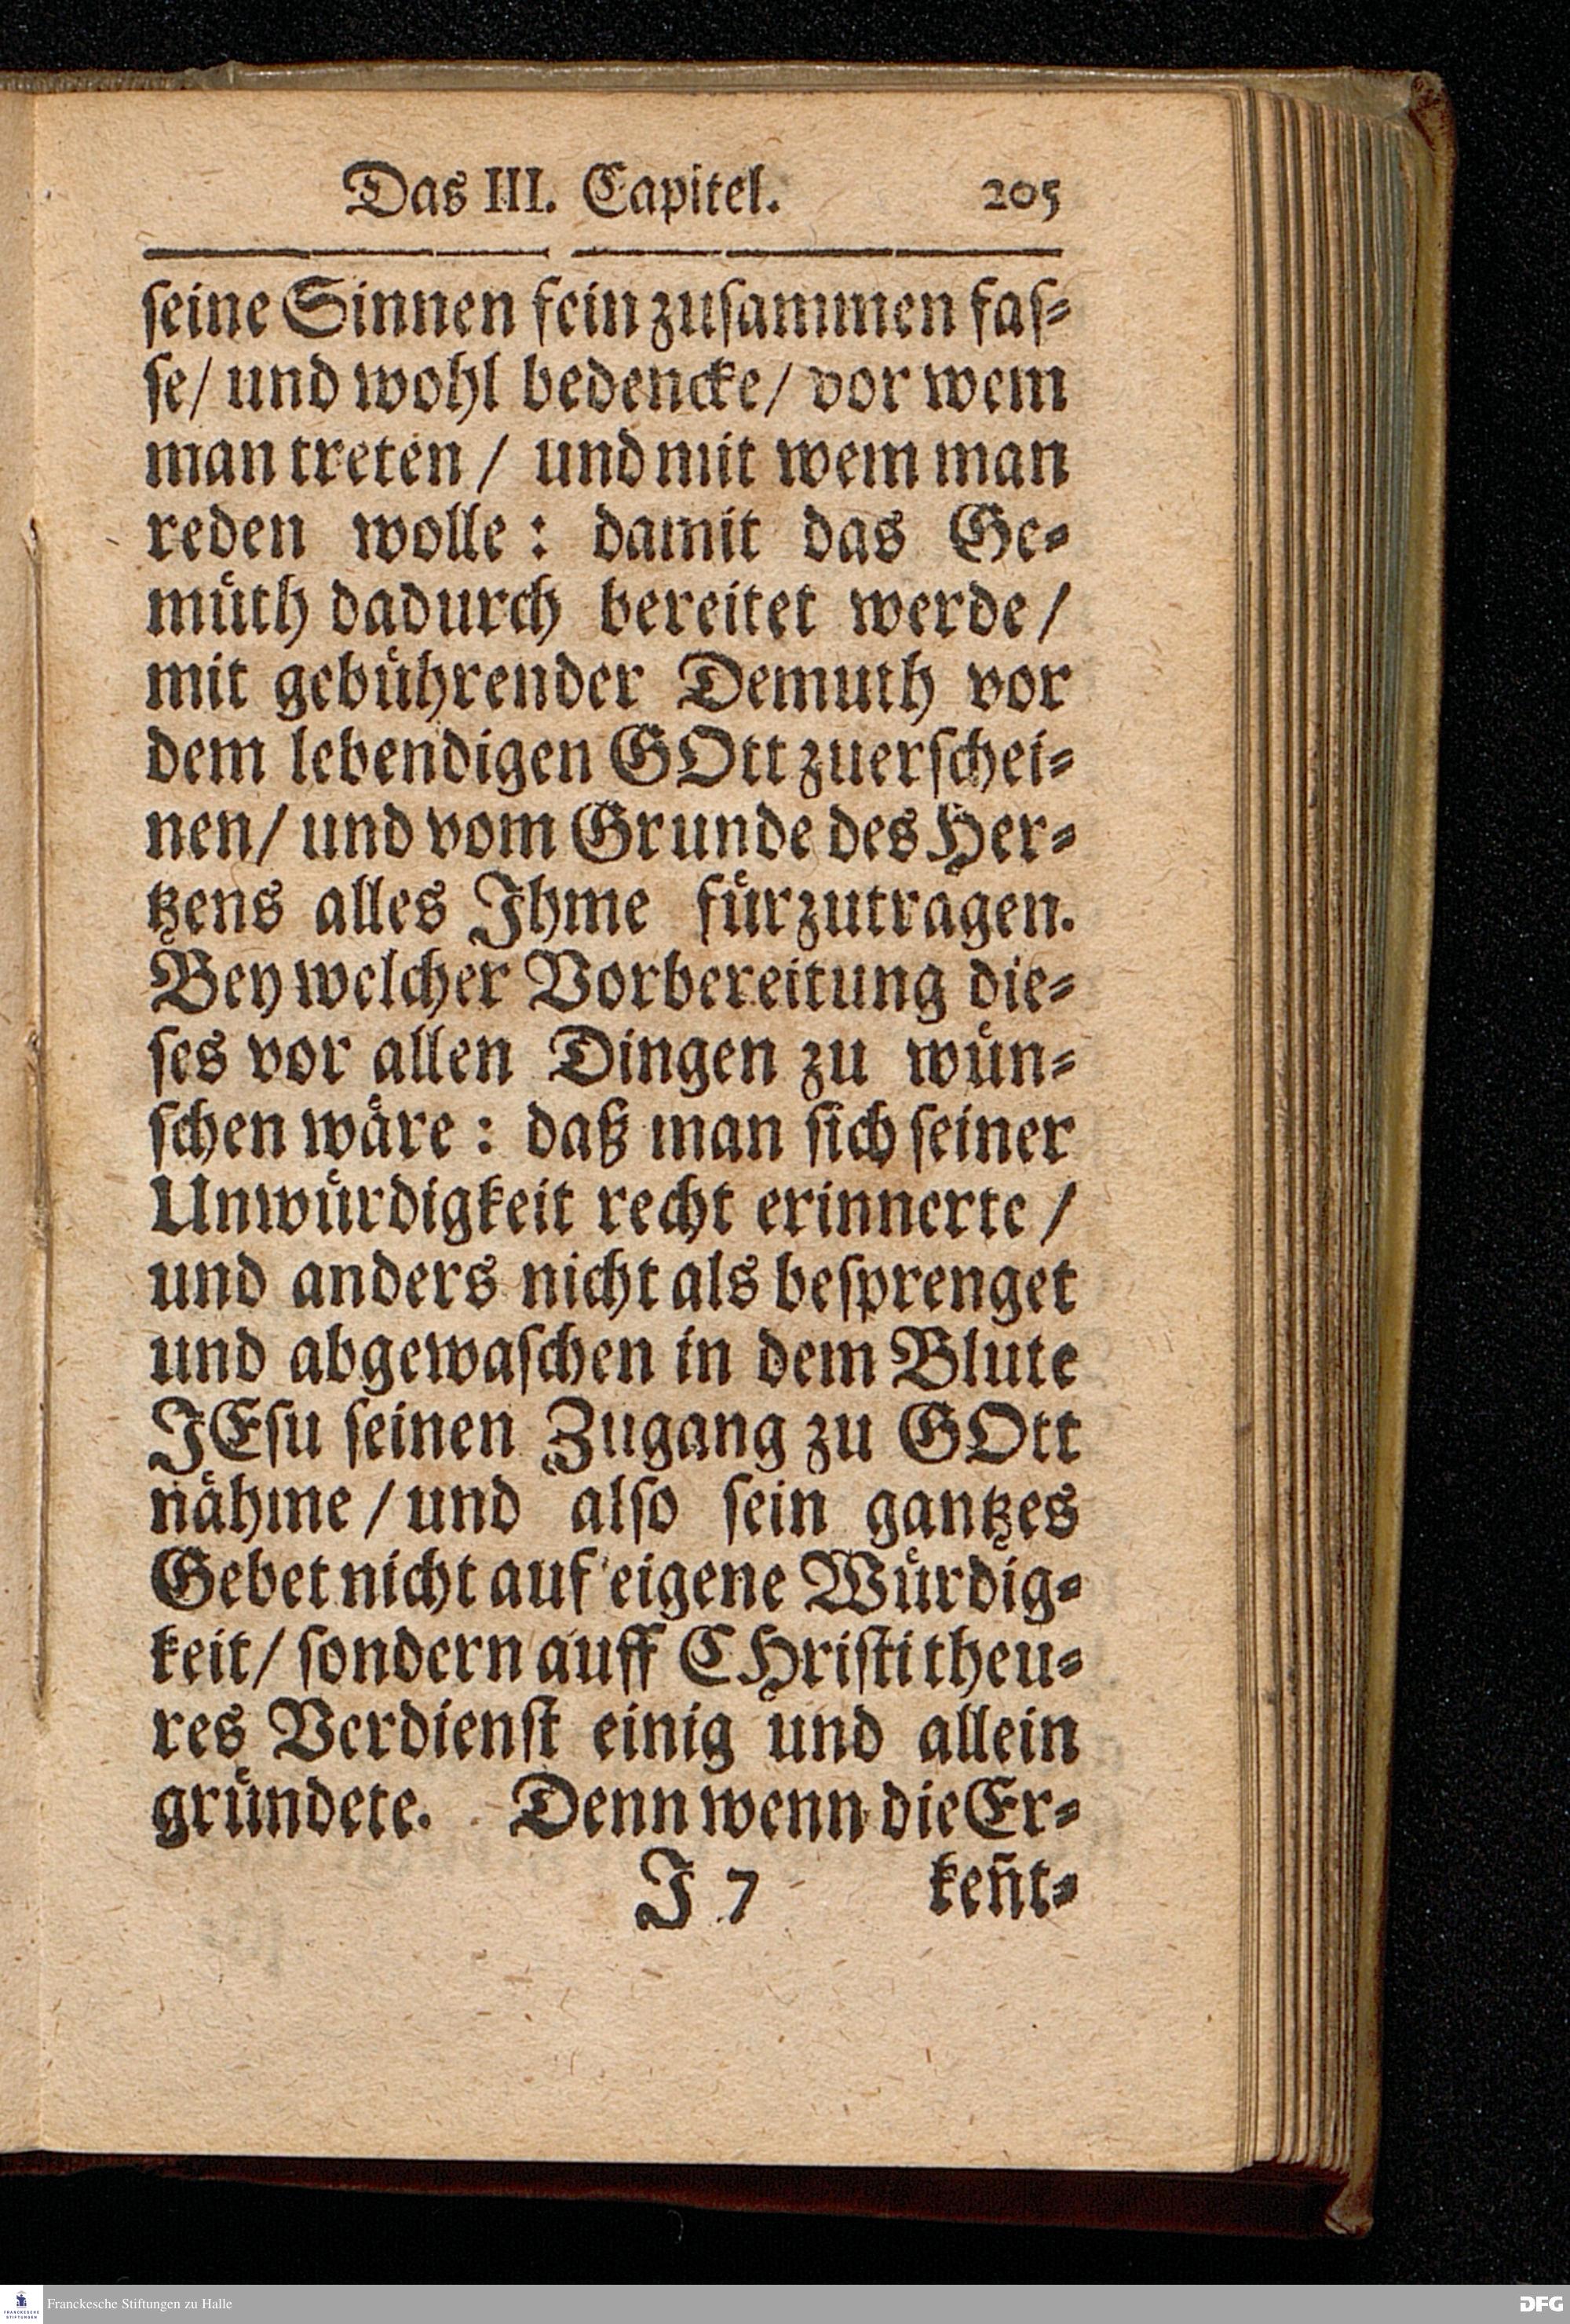 Das III. Capitel. 205
ſeine Sinnen fein zuſammen faſ⸗
ſe/ und wohl bedencke/ vor wem
man treten / und mit wem man
reden wolle : damit das Ge⸗
muͤth dadurch bereitet werde /
mit gebuͤhrender Demuth vor
dem lebendigen GOtt zuerſchei⸗
nen/ und vom Grunde des Her⸗
tzens alles Ihme fuͤrzutragen.
Bey welcher Vorbereitung die⸗
ſes vor allen Dingen zu wuͤn⸗
ſchen waͤre : daß man ſich ſeiner
Unwuͤrdigkeit recht erinnerte /
und anders nicht als beſprenget
und abgewaſchen in dem Blute
JEſu ſeinen Zugang zu GOtt
naͤhme / und alſo ſein gantzes
Gebet nicht auf eigene Wuͤrdig⸗
keit/ ſondern auff CHriſti theu⸗
res Verdienſt einig und allein
gruͤndete. Denn wenn die Er⸗
J 7 keñt⸗
Franckesche Stiftungen zu Halle
FRANCKESCHE STIFTUNGEN
DFG